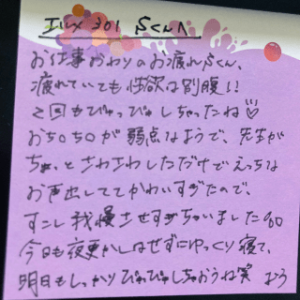 エルメ 301 Sくんへ
お仕事おわりのお疲れSくん、
疲れていても性欲は別腹!!
2回もぴゅっぴゅしちゃったね♡
おち○ち○が弱点なようで、先生が
ちょっとさわさわしただけでえっちな
お声出しててかわいすぎたので、
すこし我慢させすぎちゃいました
今日も夜更かしはせずにゆっくり寝て、
明日もしっかりぴゅぴゅしちゃおうね笑